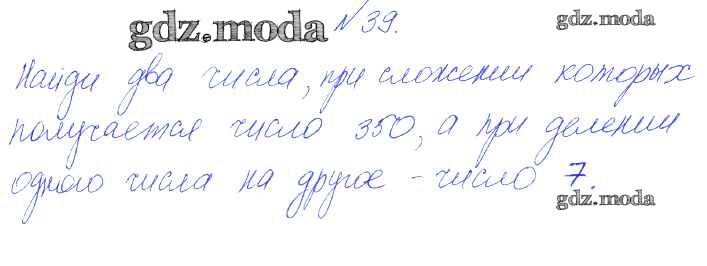 gdz.moda № 39. gdz.moda
Найди два числа, при сложении которых
получается число 350, а при делении
одного числа на другое - число 7.
gdz.moda